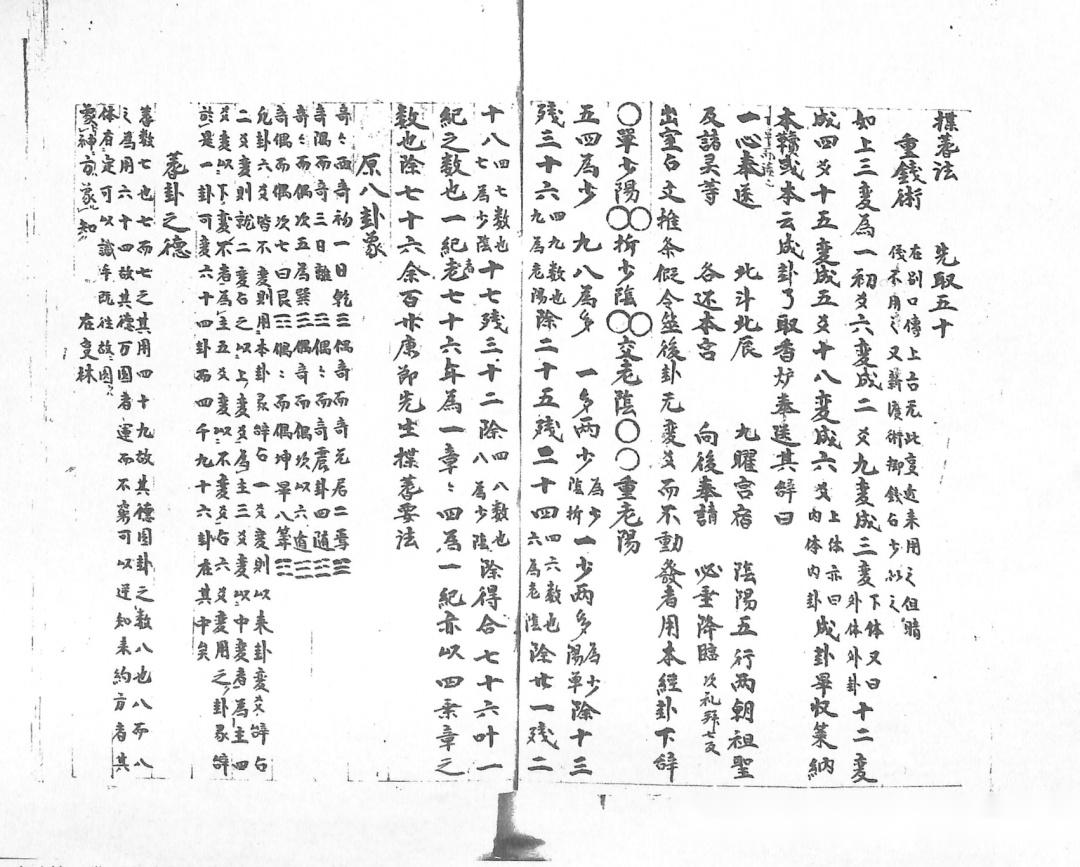 揲蓍法　先取五十
重銭術　在別口傳上古无此変近来用之但賭
銭不用之又蓍復術擲銭占少以之
如上三変為一初爻六変成二爻九変成三変下体又曰外体外卦十二変
成四爻十五変成五爻十八変成六爻上体亦曰内体内卦成卦畢収策納
本韇或本云成卦了取香炉奉送其辞曰
一心奉送　北斗北辰　九曜宮宿　陰陽五行両朝祖聖
及諸灵等　各还本宮　向後奉請　必垂降臨次礼拜七反
出室占文推条假令筮後卦无変爻而不動發者用本經卦下辞
〇單少陽〇〇折少陰〇〇交老陰〇〇重老陽
五四為少　九八為多　一多両少為少陰折一少両多為少陽單除十三
残三十六九四九数也為老陽除二十五残二十四六四六数也為老陰除廿一残二
十八七四七数也為少陰十七残三十二除八四八数也為少陰除得合七十六叶一
紀之数也一紀者七十六年為一章〻四為一紀亦以四乗章之
数也除七十六余百廿康節先生揲蓍要法
原八卦象
奇〻而奇初一曰乾☰偶奇而奇兄居二尊☱
奇偶而奇三曰離☲偶〻而奇震卦四随☳
奇〻而偶次五為巽☴偶奇而偶坎以六追☵
奇偶而偶次七曰艮☶偶〻而偶坤畢八筭☷
凡卦六爻皆不変則用本卦彖辞占一爻変則以来卦変爻辞占
二爻変則就二変占之以上変爻為主三爻変以中変者為主四
爻変以下変不者為主五爻変以不変爻占六爻変用之卦彖辞
於是一卦可変六十四卦而四千九十六卦在其中矣
蓍卦之德
蓍数七也七而七之其用四十九故其德圓卦之数八也八而八
之為用六十四故其德方圓者運而不窮可以逆知来約方者其
体有定可以識乎既往故圓
蓍神方象知　在变林